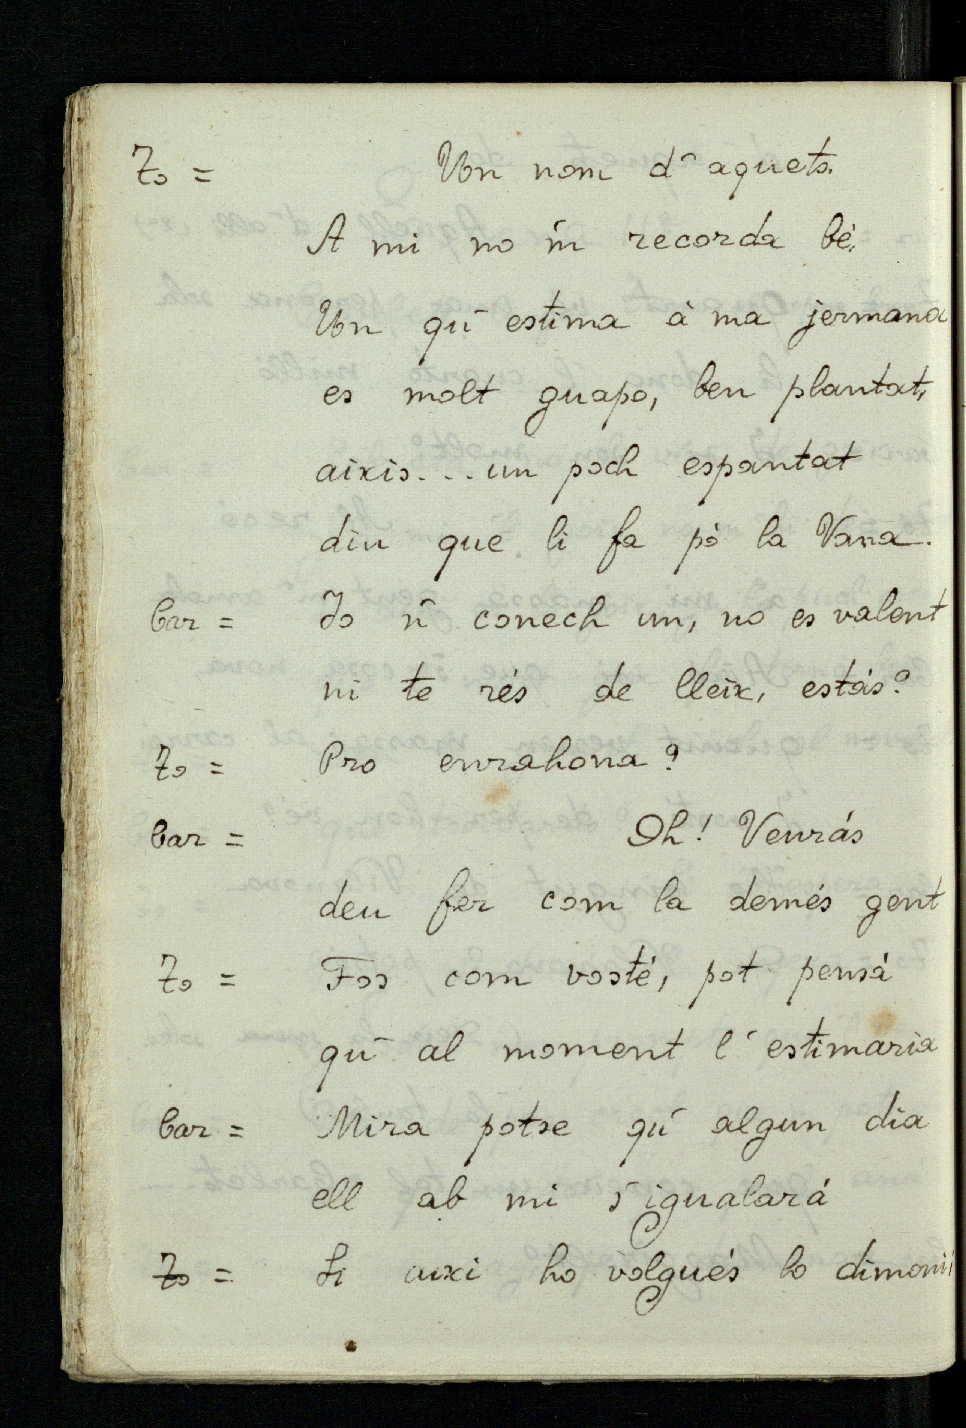 Zo = Un nom d' aquets.
A mi no 'm recorda bé,
Un qu' estima à ma jermana
es molt guapo, ben plantat,
aixis... un poch espantat
diu que li fa pò la Vana.
Bar = Jo 'n conech un, no es valent
ni te rés de lleix, estás?
Zo = Pro enrahona?
Bar = Oh! Veurás
deu fer com la demés gent
Zo = Fos com vosté, pot pensá
qu' al moment l' estimaria
Bar = Mira potse qu' algun dia
ell ab mi s' igualará
Zo = Si aixi ho volgués lo dimoni